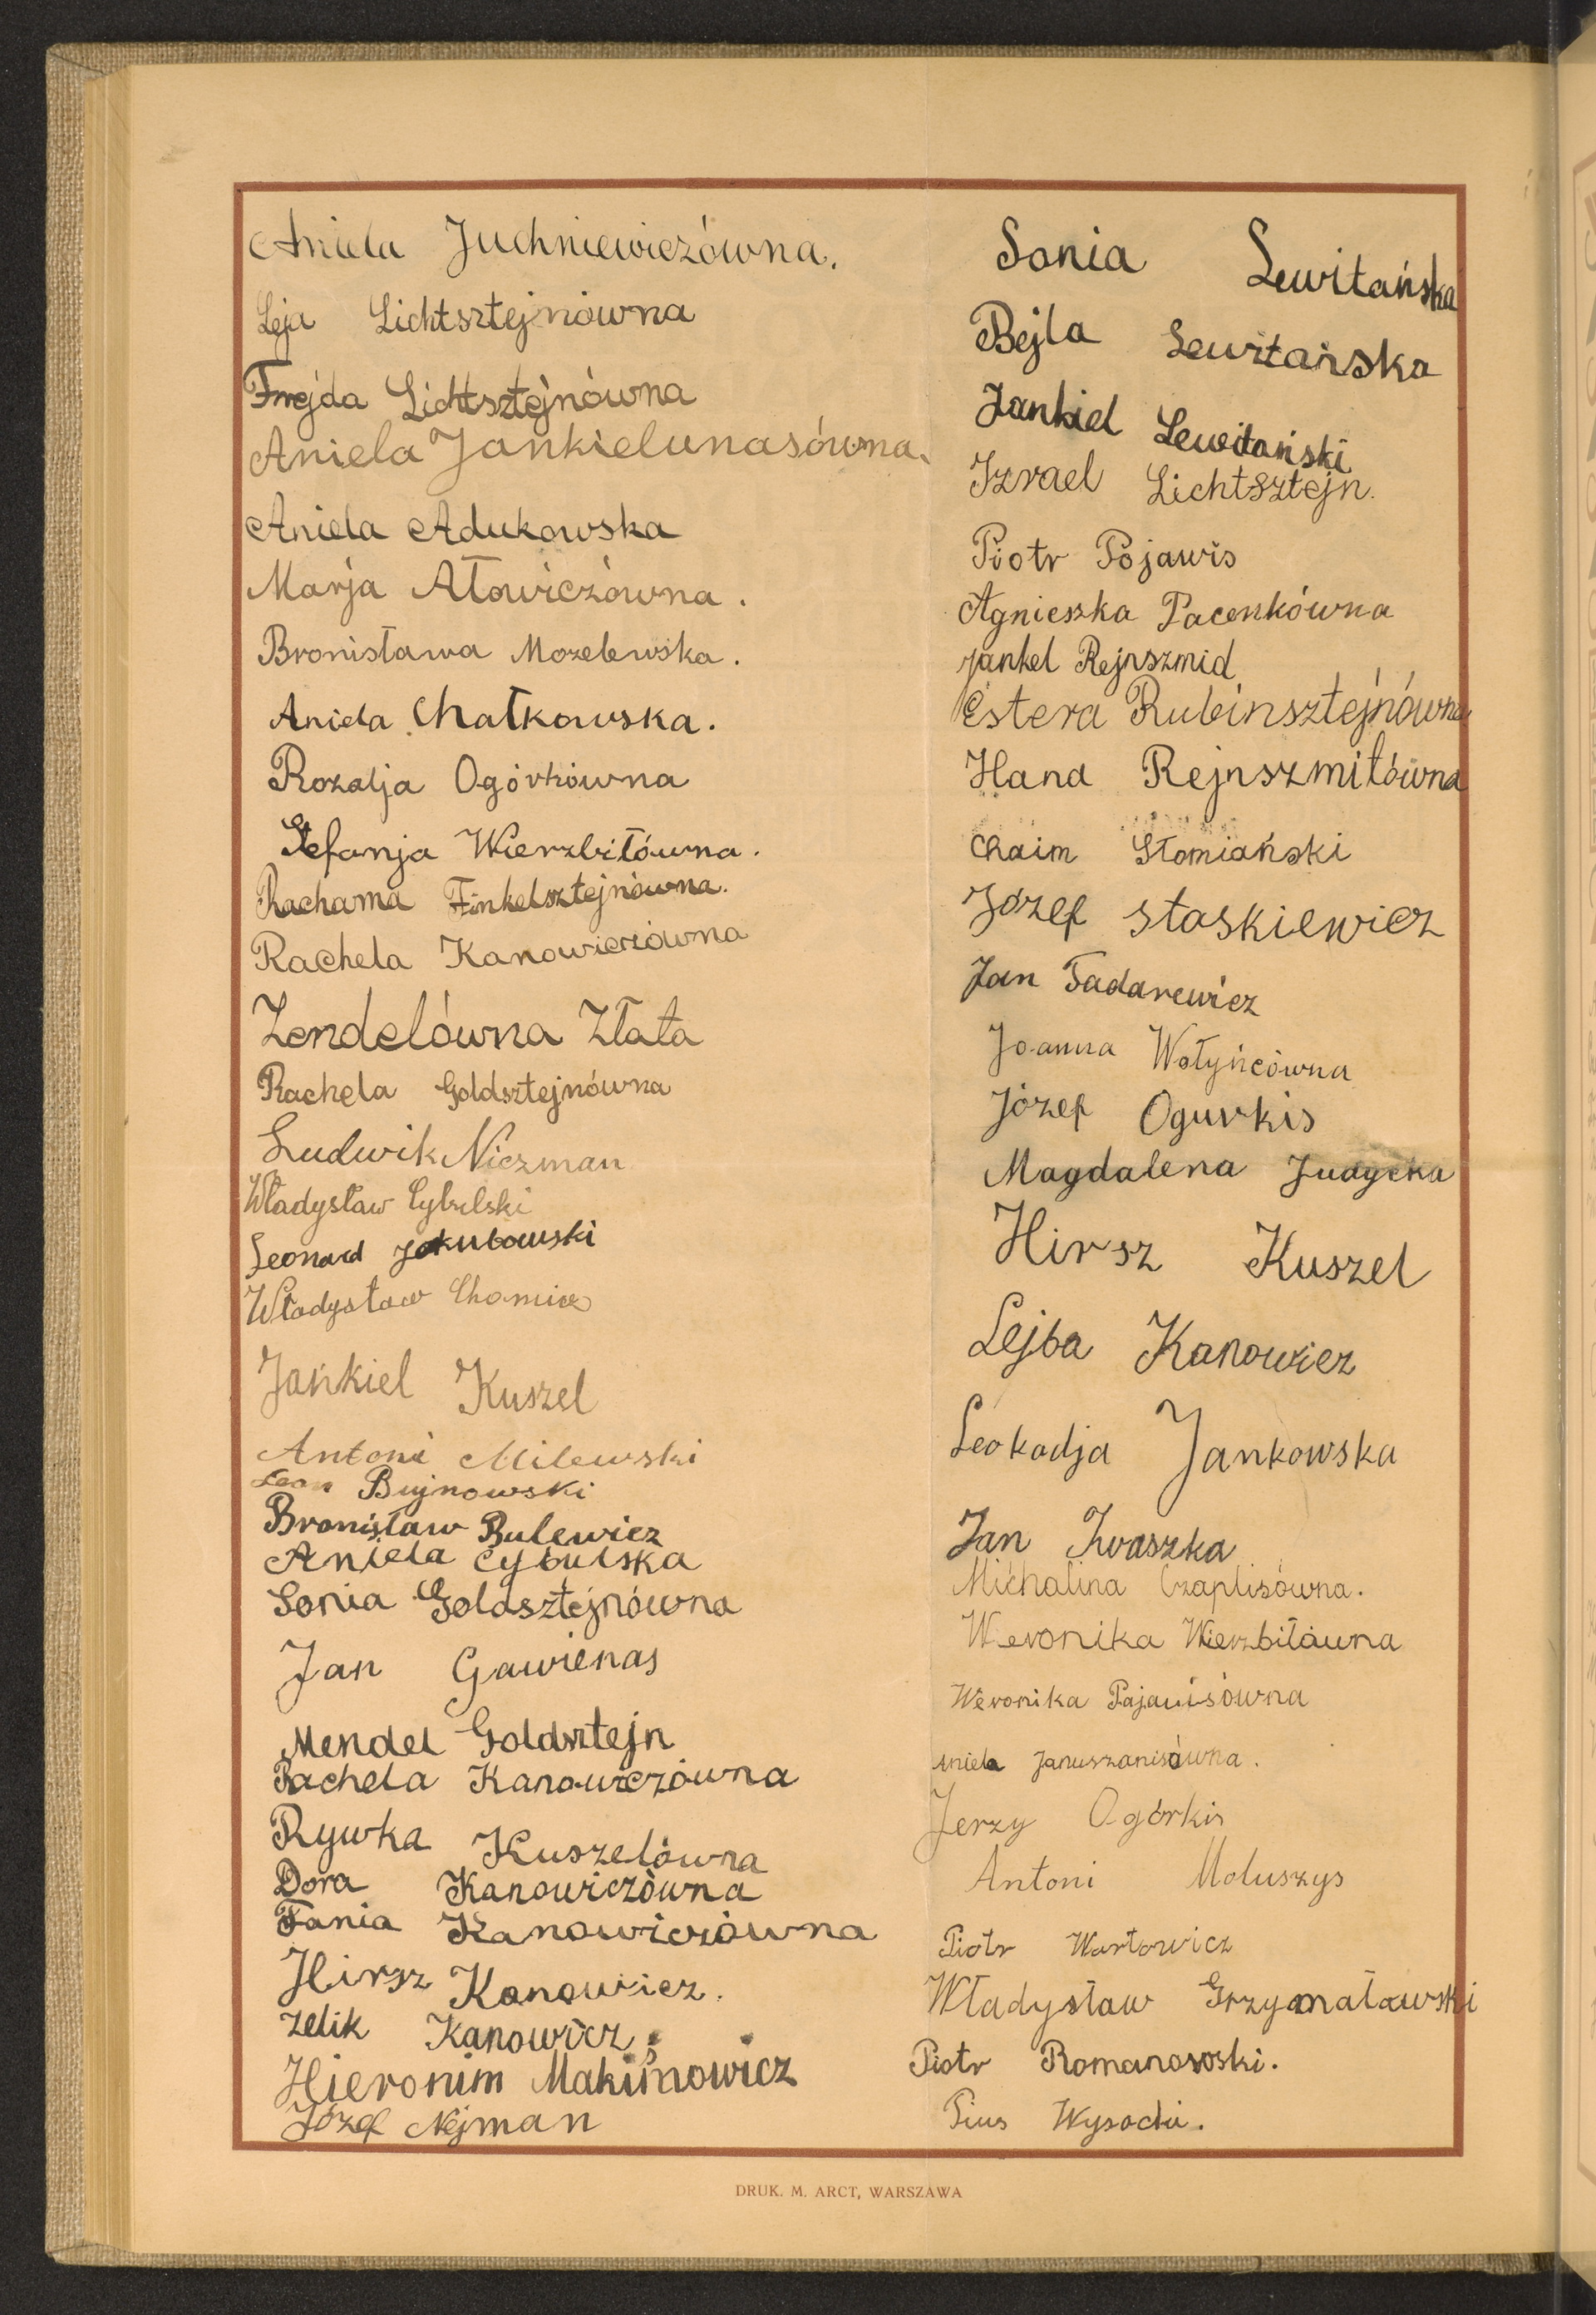 Aniela Juchniewiczówna.
Leja Lichtsztejnówna
Frejda Lichtsztejnówna
Aniela Jankielunasówna.
Aniela Adukowska
Marja Atowiczówna.
Bronisława Mozelewska.
Aniela Chatkowska.
Rozalja Ogórkówna
Stefanja Wierzbitówna.
Rachama Finkelsztejnówna.
Rachela Kanowiczówna
Zendelówna Złata
Rachela Goldsztejnówna
Ludwik Niczman
Władysław Cybulski
Leonard Jakubowski
Władysław Chomicz
Jankiel Kuszel
Antoni Milewski
Leon Bujnowski
Bronisław Bulewicz
Aniela Cybulska
Sonia Goldsztejnówna
Jan Gawienas
Mendel Goldsztejn
Rachela Kanowiczówna
Rywka Kuszelówna
Dora Kanowiczówna
Fania Kanowiczówna
Hirsz Kanowicz.
Zelik Kanowicz
Hieronim Maksimowicz
Józef Nejman
Sonia Lewitańska
Bejla Lewitańska
Jankiel Lewitański
Izrael Lichtsztejn.
Piotr Pojawis
Agnieszka Pacenkówna
Jankel Rejnszmid
Estera Rubinsztejnówna
Hana Rejnszmitówna
Chaim Słomiański
Józef Staskiewicz
Jan Tadarewicz
Joanna Wołyńcówna
Józef Ogurkis
Magdalena Judycka
Hirsz Kuszel
Lejba Kanowicz
Leokadja Jankowska
Jan Iwaszka
Michalina Czaplisówna.
Weronika Wierzbitówna
Weronika Pajawisówna
Aniela Januszanisówna.
Jerzy Ogórkis
Antoni Moluszys
Piotr Wartowicz
Władysław Grzymałowski
Piotr Romanowski.
Pius Wysocki.
DRUK. M. ARCT, WARSZAWA